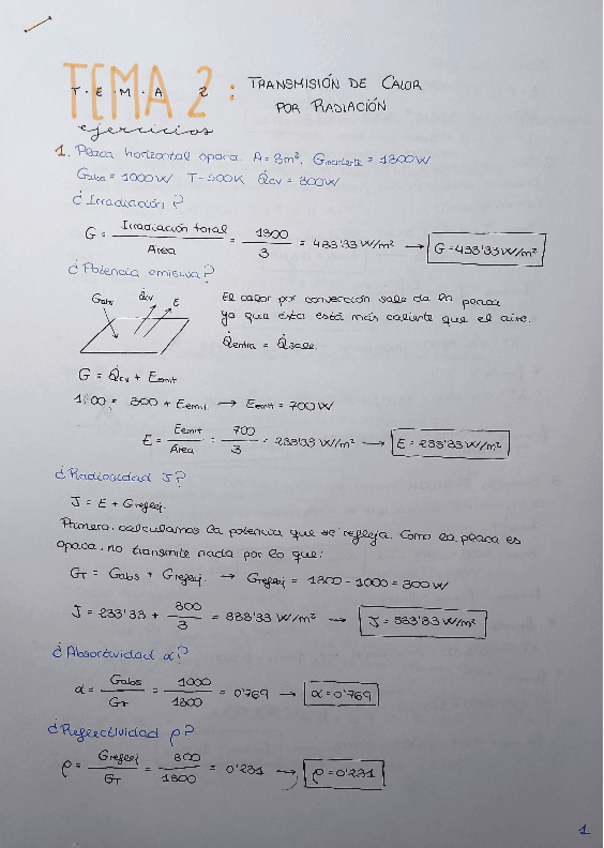 TEMA 2: TRANSMISIÓN DE CALOR
T.E.M.A 2
POR RADIACIÓN
ejercicios
1. Placa horizontal opaca. A = 3m². Gincidente = 1300W
Gabs = 1000W T=500K Q̇cv = 300W
¿Irradiación?
G = Irradiación total / Área = 1300 / 3 = 433'33 W/m² → G = 433'33 W/m²
¿Potencia emisiva?
Gabs Q̇cv E
El calor por convección sale de la placa
ya que ésta está más caliente que el aire.
Q̇entra = Q̇sale.
G = Q̇cv + Eemit
1000 = 300 + Eemit. → Eemit = 700W
E = Eemit / Área = 700 / 3 = 233'33 W/m² → E = 233'33 W/m²
¿Radiosidad J?
J = E + Greflej.
Primero, calculamos la potencia que se refleja. Como la placa es
opaca, no transmite nada por lo que:
GT = Gabs + Greflej. → Greflej = 1300 - 1000 = 300W
J = 233'33 + 300 / 3 = 333'33 W/m² → J = 333'33 W/m²
¿Absortividad α?
α = Gabs / GT = 1000 / 1300 = 0'769 → α = 0'769
¿Reflectividad ρ?
ρ = Greflej / GT = 300 / 1300 = 0'231 → ρ = 0'231
1